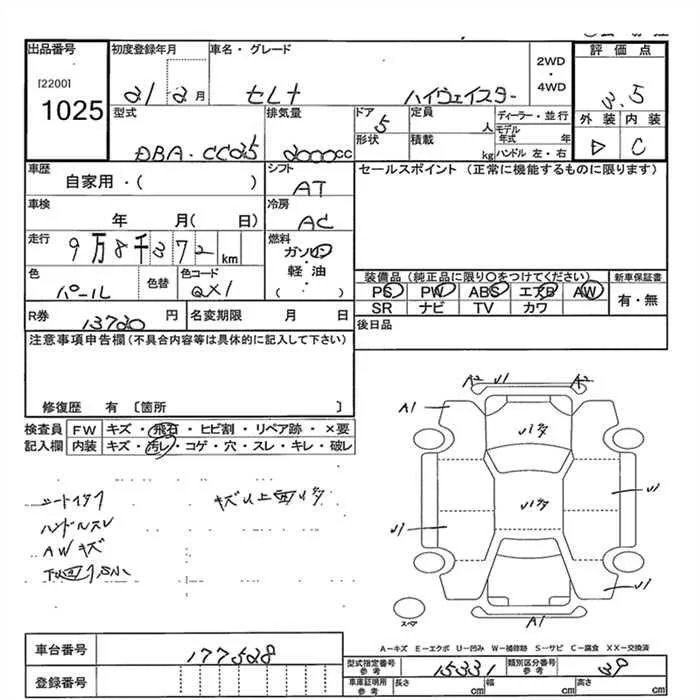 出品番号 初度登録年月 車名・グレード 2WD・4WD 評価点
[2200]
1025
21 2月 セレナ ハイウェイスター 3.5
型式 排気量 ドア 5 定員 人 ディーラー・並行 外装 内装
形状 積載 kg モデル年式 年 ハンドル 左・右
DBA-CC25 2000cc C
車歴 シフト セールスポイント (正常に機能するものに限ります)
自家用・( ) AT
車検 冷房
年 月( 日) AC
走行 燃料
9万8千372km ガソリン
軽油
( )
色 色替 色コード
パール QX1
装備品 (純正品に限り○をつけてください) 新車保証書
PS PW ABS エアB AW 有・無
SR ナビ TV カワ
R券 13720円 名変期限 月 日 後日品
注意事項申告欄(不具合内容等は具体的に記入して下さい)
修復歴 有 〔箇所 〕
検査員 FW キズ・飛石・ヒビ割・リペア跡・×要
記入欄 内装 キズ・汚レ・コゲ・穴・スレ・キレ・破レ
ハンドルスレ
AWキズ
A2 U1 A2
A1
U1
U1
U1
U1
A1
スペア
A-キズ E-エクボ U-凹み W-補修跡 S-サビ C-腐食 XX-交換済
車台番号 177528
登録番号
型式指定番号 参考 15331 類別区分番号 参考 39
車庫証明用 参考 長さ cm 幅 cm 高さ cm